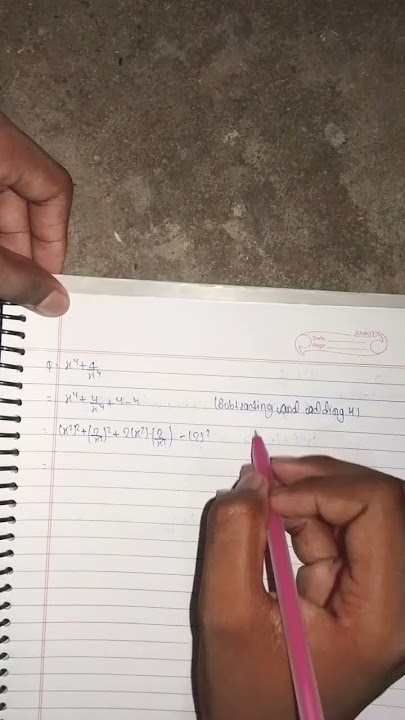 ANKIT
Date
Page
Q. x⁴ + 4/x⁴
= x⁴ + 4/x⁴ + 4 - 4 (Subtracting and adding 4)
= (x²)² + (2/x²)² + 2(x²)(2/x²) - (2)²
=